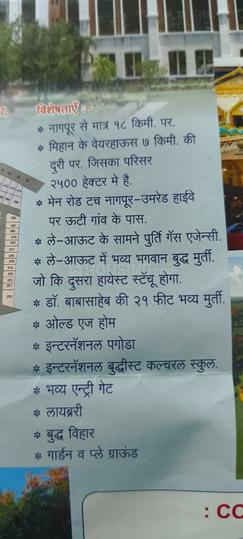 विशेषताएँ :-
* नागपूर से मात्र १८ किमी. पर.
* मिहान के वेयरहाऊस ७ किमी. की
दुरी पर. जिसका परिसर
२५०० हेक्टर मे है.
* मेन रोड टच नागपूर-उमरेड हाईवे
पर ऊटी गांव के पास.
* ले-आऊट के सामने पुर्ति गॅस एजेन्सी.
* ले-आऊट में भव्य भगवान बुद्ध मुर्ती.
जो कि दुसरा हायेस्ट स्टॅचू होगा.
* डॉ. बाबासाहेब की २१ फीट भव्य मुर्ती.
* ओल्ड एज होम
* इन्टरनॅशनल पगोडा
* इन्टरनॅशनल बुद्धीस्ट कल्चरल स्कुल.
* भव्य एन्ट्री गेट
* लायब्ररी
* बुद्ध विहार
* गार्डन व प्ले ग्राऊंड
: CO